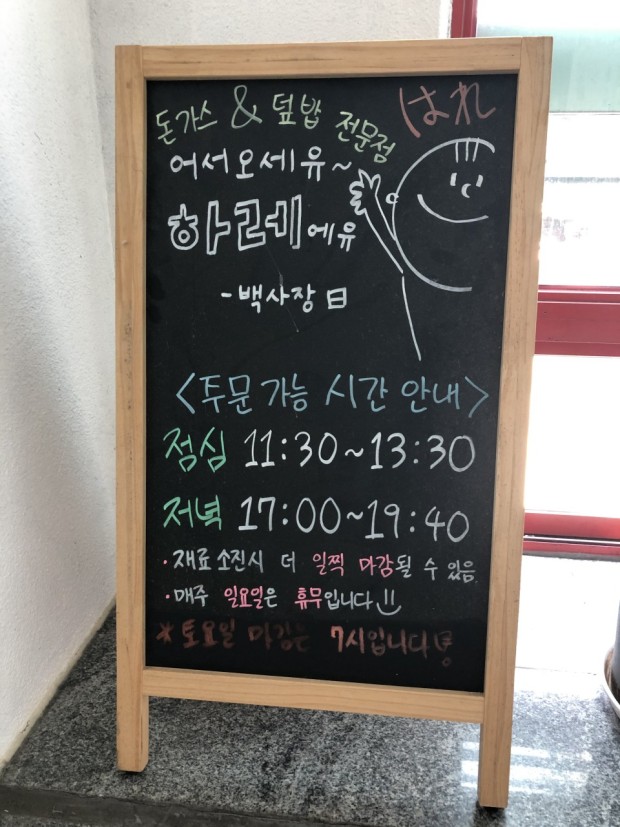 돈가스 & 덮밥 전문점
はれ
어서오세유~
하레에유
-백사장 日
<주문 가능 시간 안내>
점심 11:30~13:30
저녁 17:00~19:40
· 재료 소진시 더 일찍 마감될 수 있음
· 매주 일요일은 휴무입니다
* 토요일 마감은 7시입니다